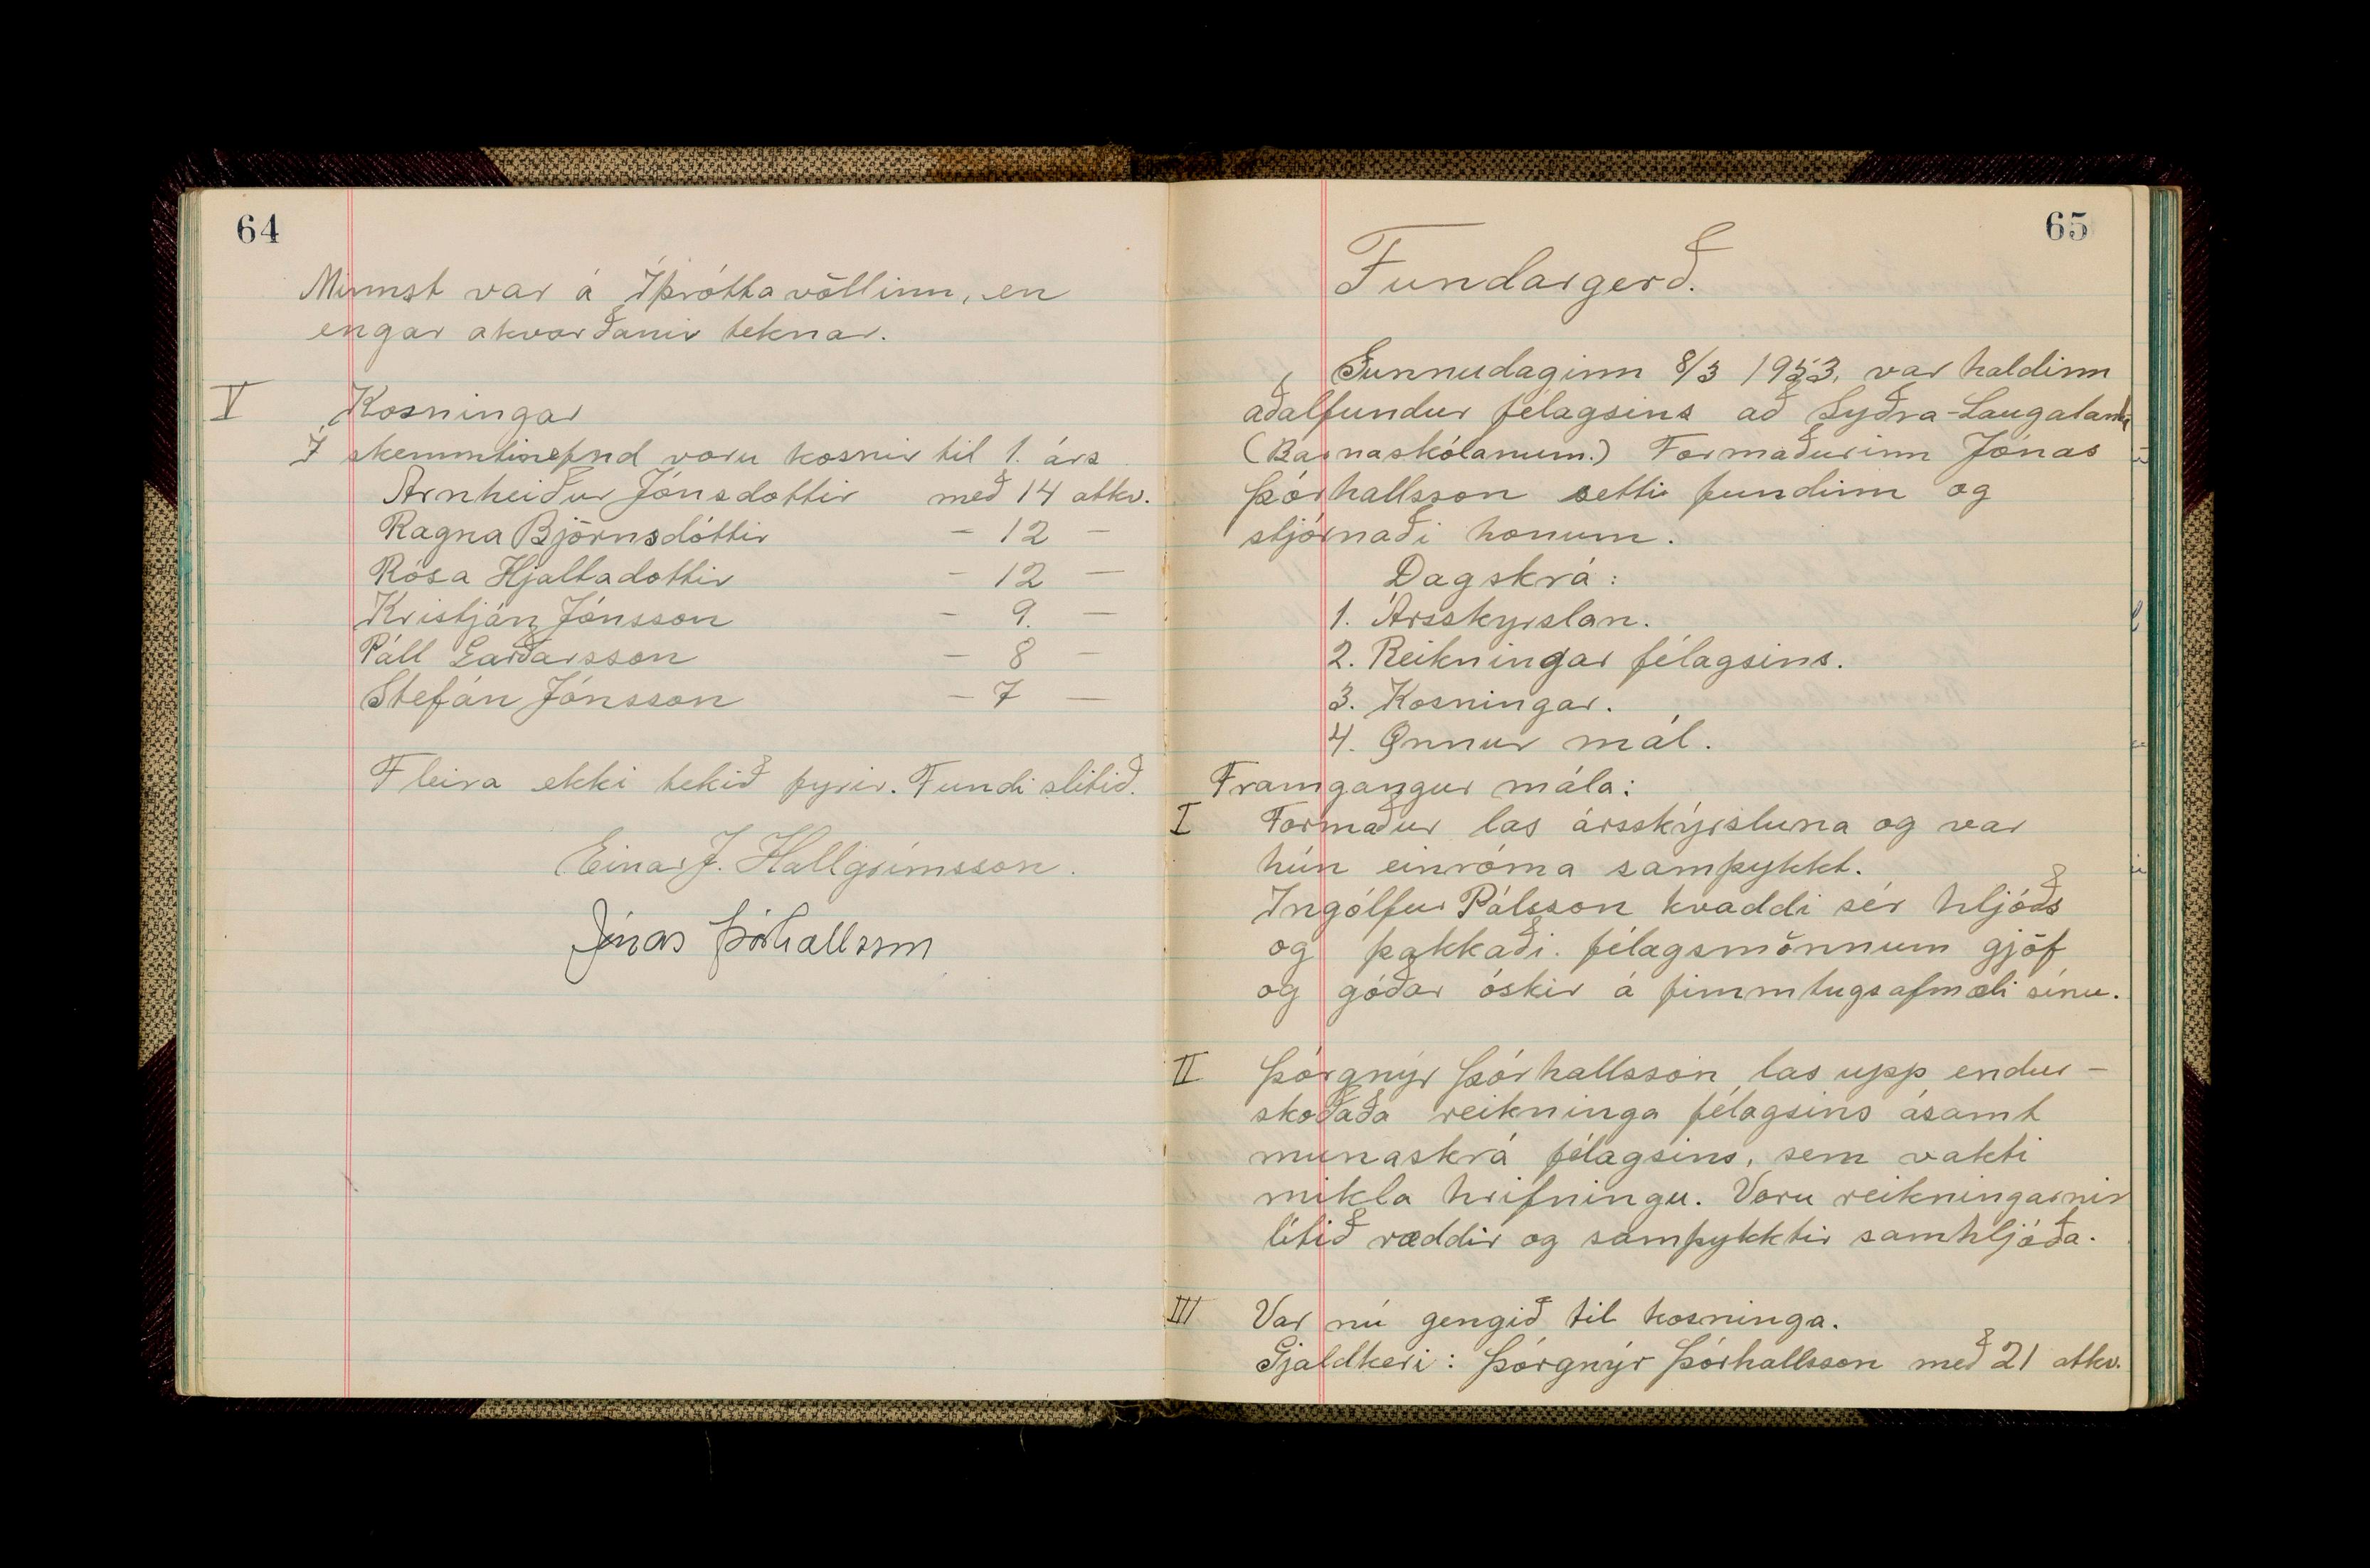 64
Minnst var á Íþróttavöllinn, en
engar akvarðanir teknar.
V Kosningar
Í skemmtinefnd voru kosnir til 1. árs
Arnheiður Jónsdottir með 14 atkv.
Ragna Björnsdóttir - 12 -
Rósa Hjaltadottir - 12 -
Kristján Jónsson - 9. -
Páll Garðarsson - 8 -
Stefán Jónsson - 7 -
Fleira ekki tekið fyrir. Fundi slitið.
Einar J. Hallgrímsson.
Jónas Þórhallsson
65
Fundargerð.
Sunnudaginn 8/3 1953. var haldinn
aðalfundur félagsins að Syðra-Laugalandi
(Barnaskólanum.) Formaðurinn Jónas
Þórhallsson setti fundinn og
stjórnaði honum.
Dagskrá:
1. Ársskyrslan.
2. Reikningar félagsins.
3. Kosningar.
4. Önnur mál.
Framgangur mála:
I Formaður las ársskýrsluna og var
hún einróma samþykkt.
Ingólfur Pálsson kvaddi sér hljóðs
og þakkaði félagsmönnum gjöf
og góðar óskir á fimmtugsafmæli sínu.
II Þórgnýr Þórhallsson las upp endur-
skoðaða reikninga félagsins ásamt
munaskrá félagsins, sem vakti
mikla hrifningu. Voru reikningarnir
lítið ræddir og samþykktir samhljóða.
III Var nú gengið til kosninga.
Gjaldkeri: Þórgnýr Þórhallsson með 21 atkv.